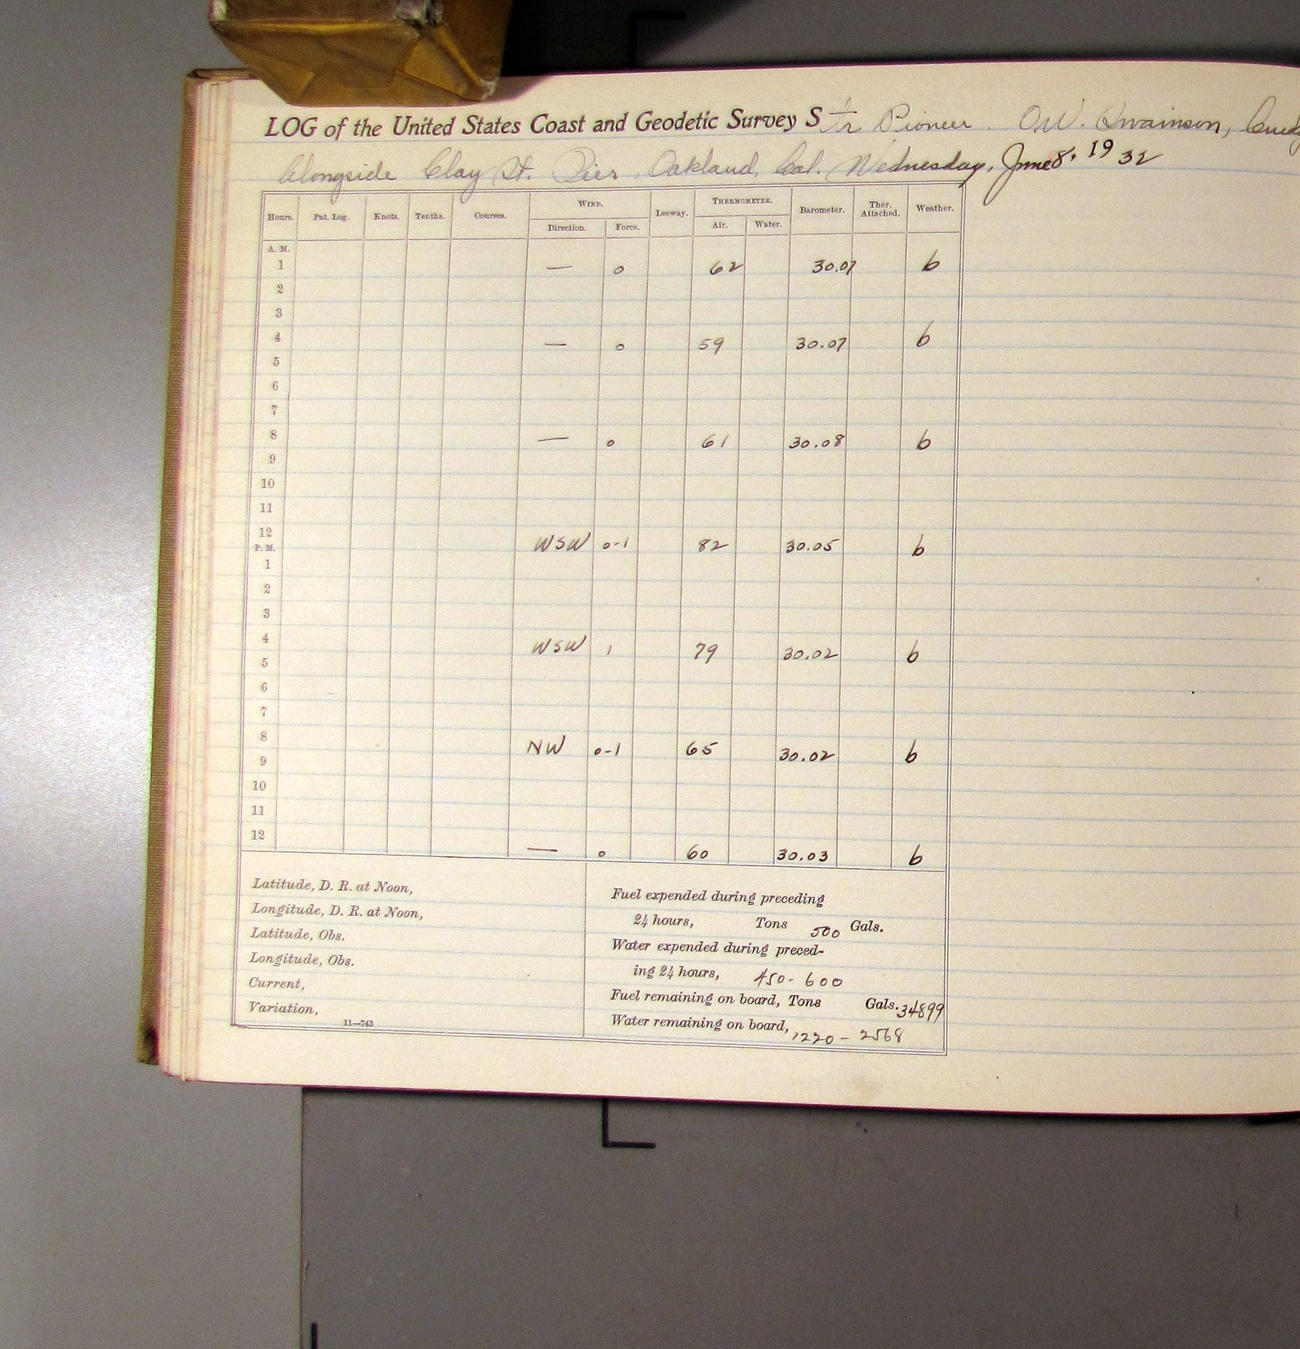 LOG of the United States Coast and Geodetic Survey Str Pioneer. O.W. Swainson,
Alongside Clay St. Pier, Oakland, Cal. Wednesday, June 8, 1932
Hours. Pat. Log. Knots. Tenths. Courses. WIND. Leeway. THERMOMETER. Barometer. Ther. Attached. Weather.
Direction. Force. Air. Water.
A. M.
1 — 0 62 30.07 b
2
3
4 — 0 59 30.07 b
5
6
7
8 — 0 61 30.08 b
9
10
11
12 WSW 0-1 82 30.05 b
P. M.
1
2
3
4 WSW 1 79 30.02 b
5
6
7
8 NW 0-1 65 30.02 b
9
10
11
12 — 0 60 30.03 b
Latitude, D. R. at Noon,
Longitude, D. R. at Noon,
Latitude, Obs.
Longitude, Obs.
Current,
Variation,
11—743
Fuel expended during preceding
24 hours, Tons 500 Gals.
Water expended during preced-
ing 24 hours, 450 - 600
Fuel remaining on board, Tons Gals. 34899
Water remaining on board, 1220 - 2568